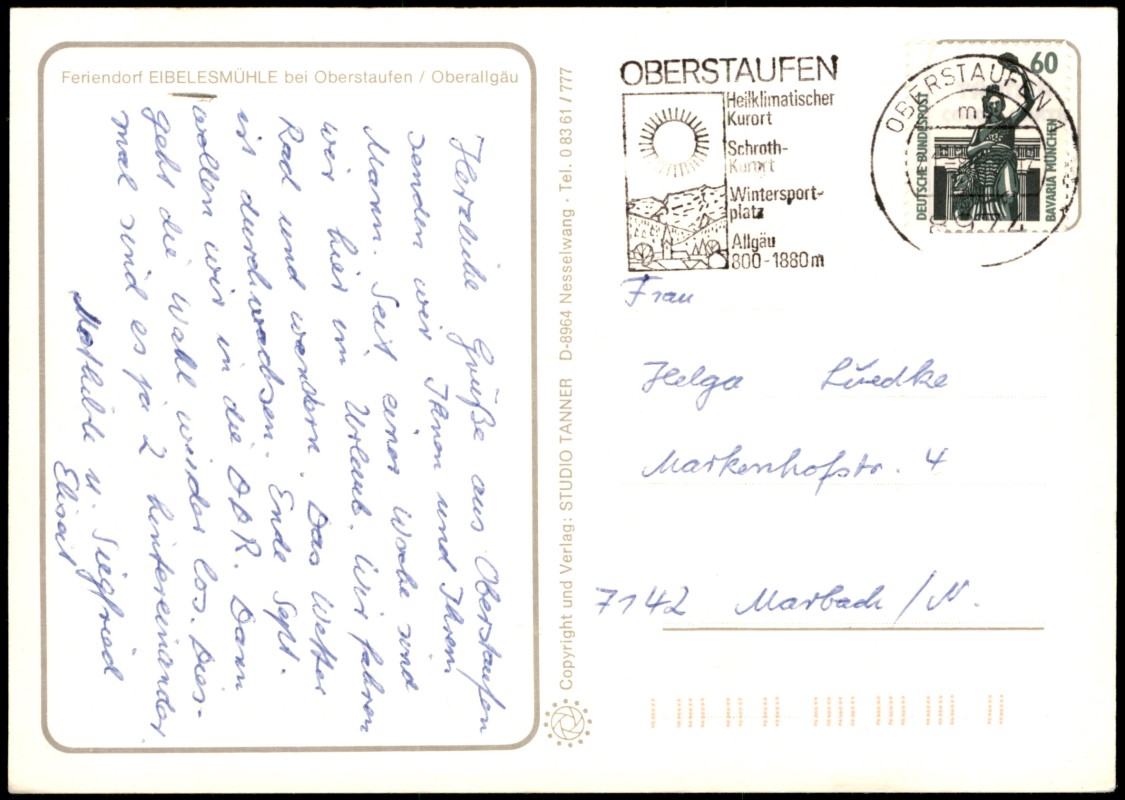 Feriendorf EIBELESMÜHLE bei Oberstaufen / Oberallgäu
Herzliche Grüße aus Oberstaufen
senden wir Ihnen und Ihrem
Mann. Seit einer Woche sind
wir hier im Urlaub. Wir fahren
Rad und wandern. Das Wetter
ist durchwachsen. Ende Sept.
wollen wir in die DDR. Dann
geht die Wahl wieder los. Dies-
mal sind es ja 2 hintereinander.
u. Siegfried
Copyright und Verlag: STUDIO TANNER D-8964 Nesselwang · Tel. 0 83 61 / 777
OBERSTAUFEN
Heilklimatischer
Kurort
Schroth-
Kurort
Wintersport-
platz
Allgäu
800-1880m
OBERSTAUFEN
60
DEUTSCHE BUNDESPOST
BAVARIA MÜNCHEN
Frau
Helga Lüedke
Markenhofstr. 4
7142 Marbach / N.